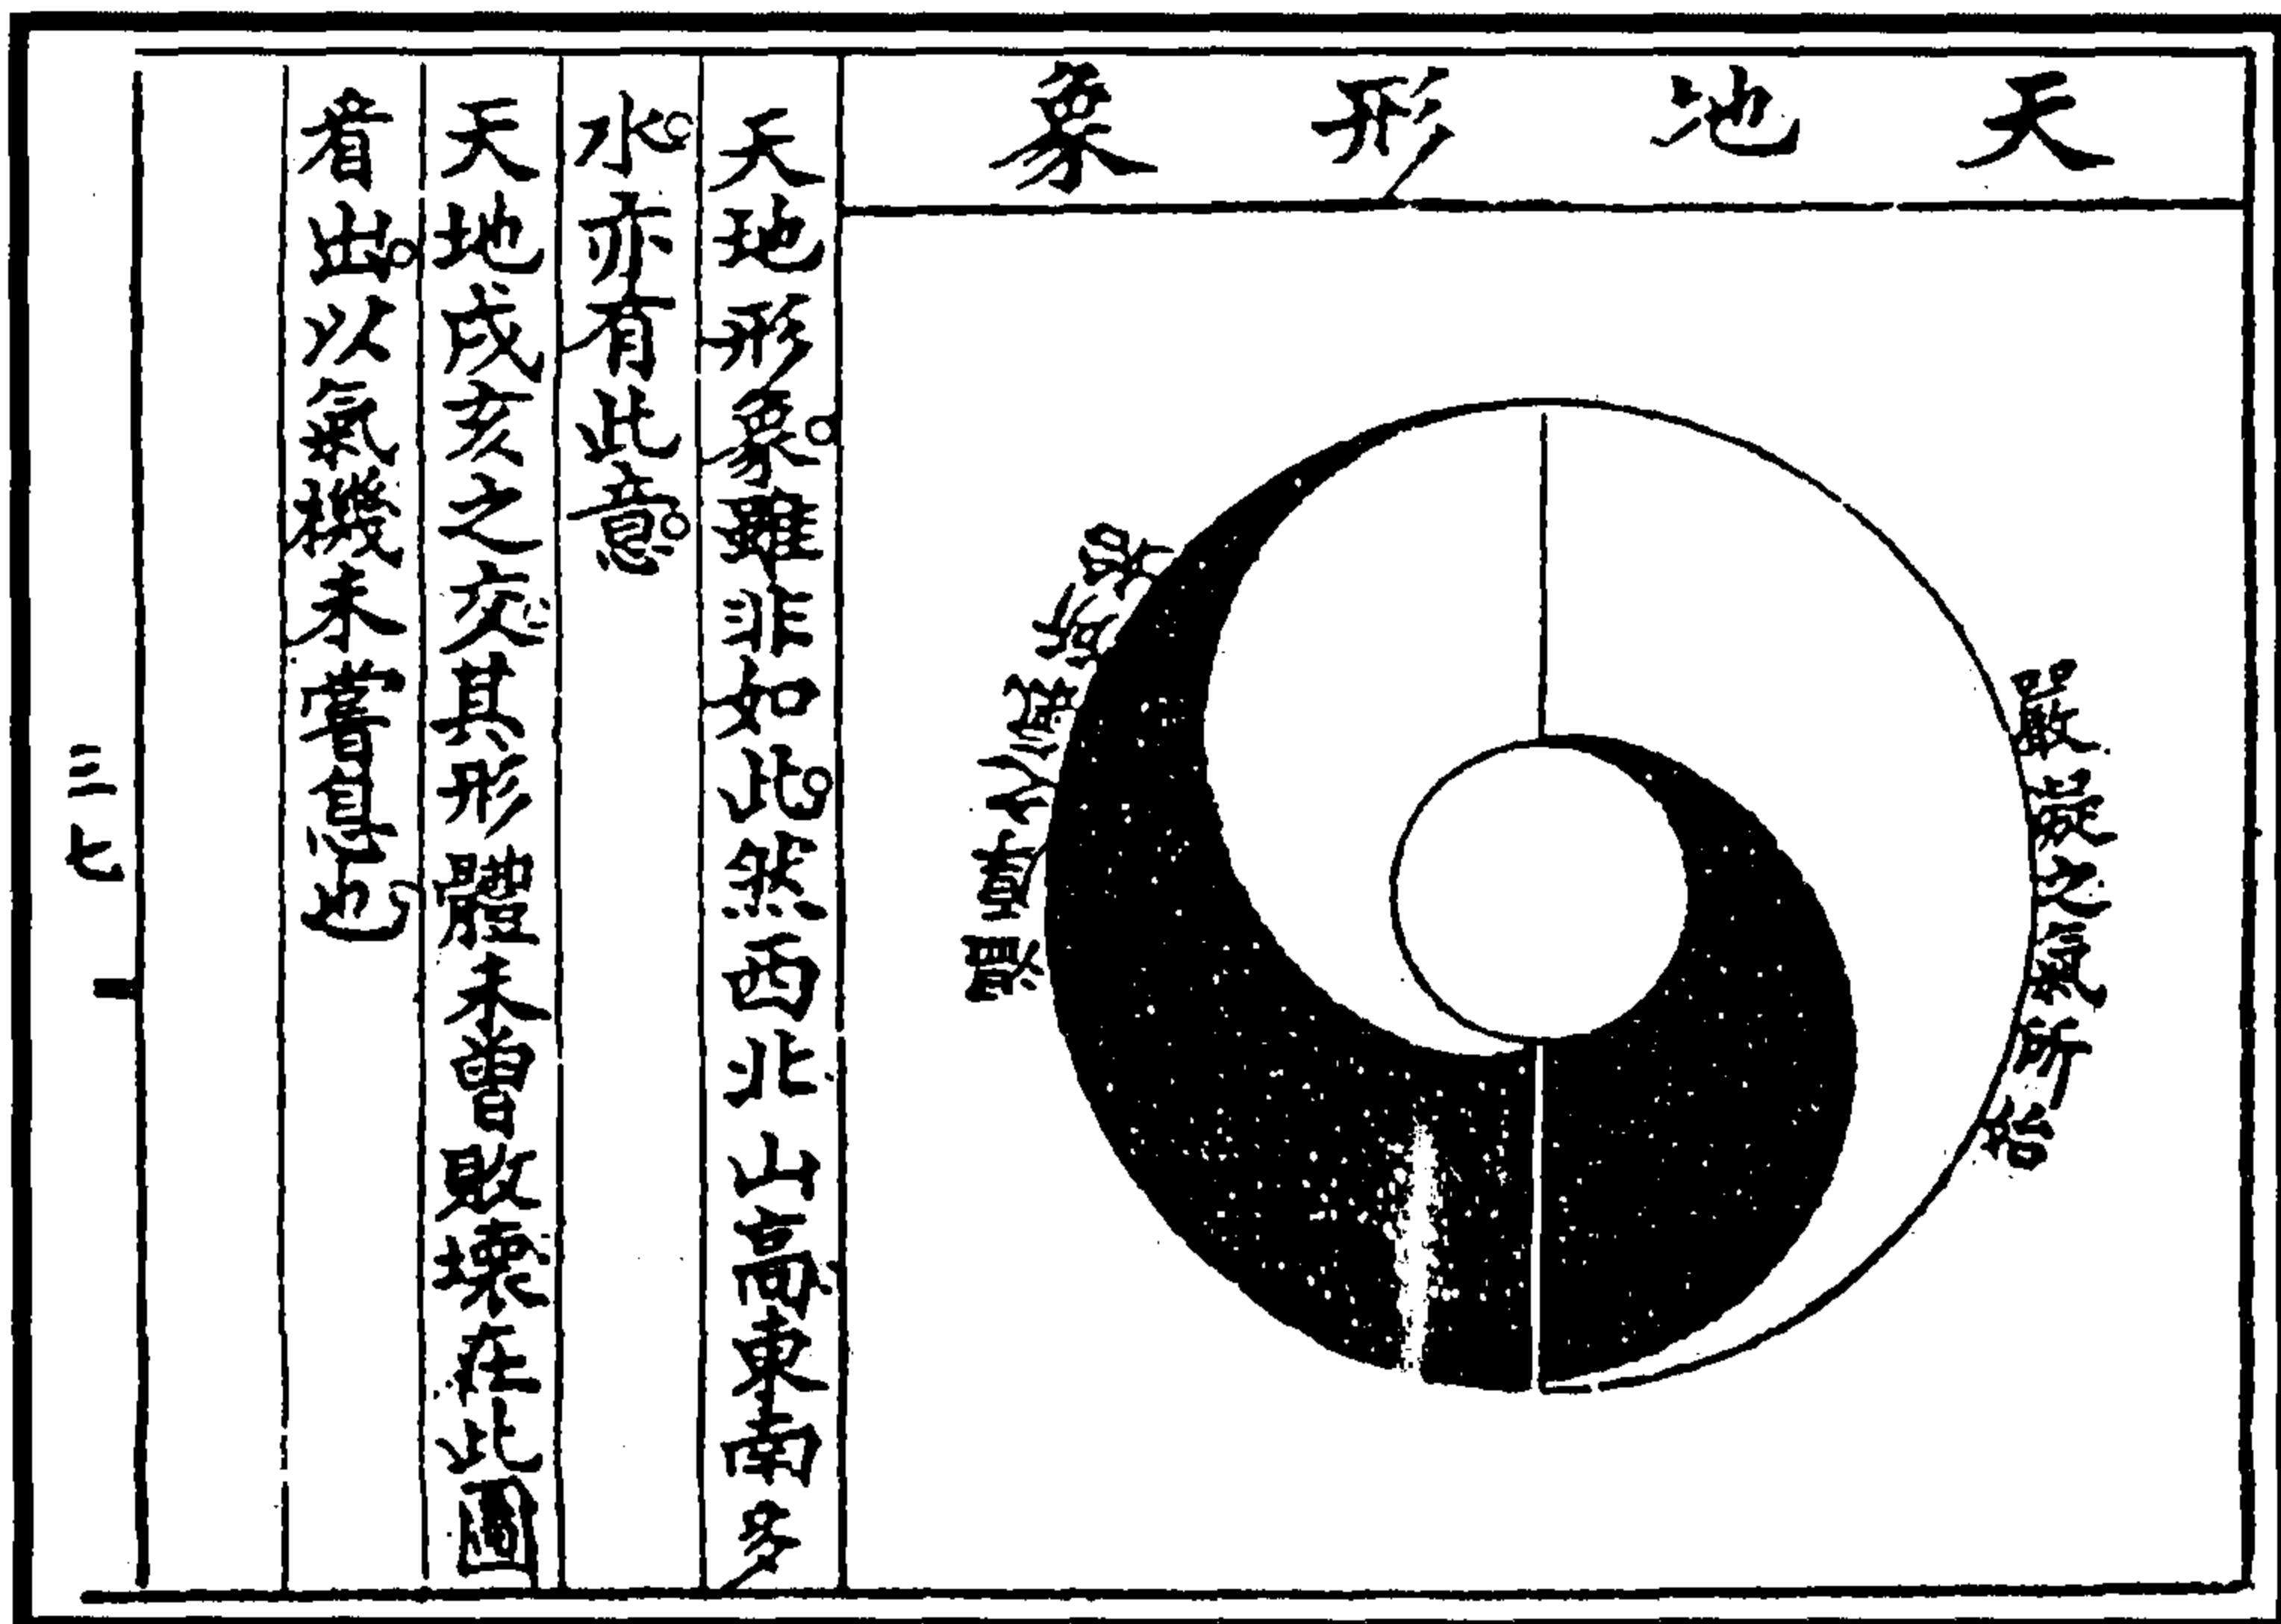 天地形象
嚴凝之氣所始
天地形象。雖非如此。然西北山高東南多
水。亦有此意。
天地戌亥之交其形體未曾敗壞在此圖
看出。以氣機未嘗息也。
三七